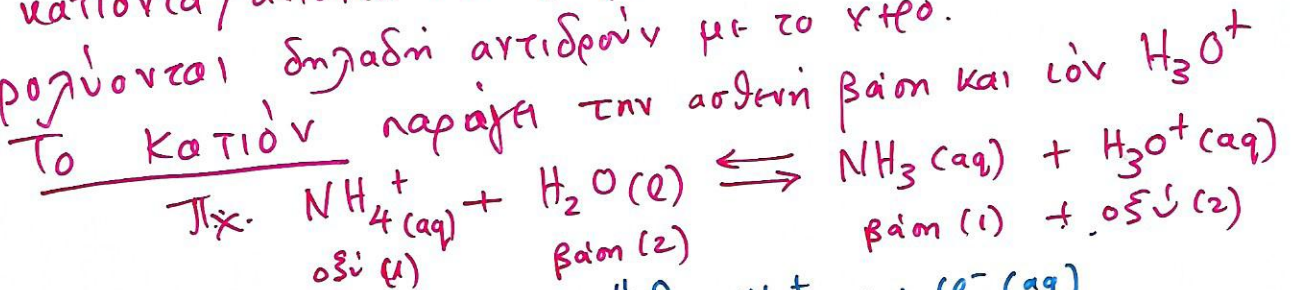 κατιόντα,
ρολύονται δηλαδή αντιδρούν με το νερό.
Το κατιόν παράγει την ασθενή βάση και ιόν H₃O⁺
Π.χ. NH₄⁺(aq) + H₂O(l) ⇌ NH₃(aq) + H₃O⁺(aq)
οξύ (1) βάση (2) βάση (1) + οξύ (2)
(aq)